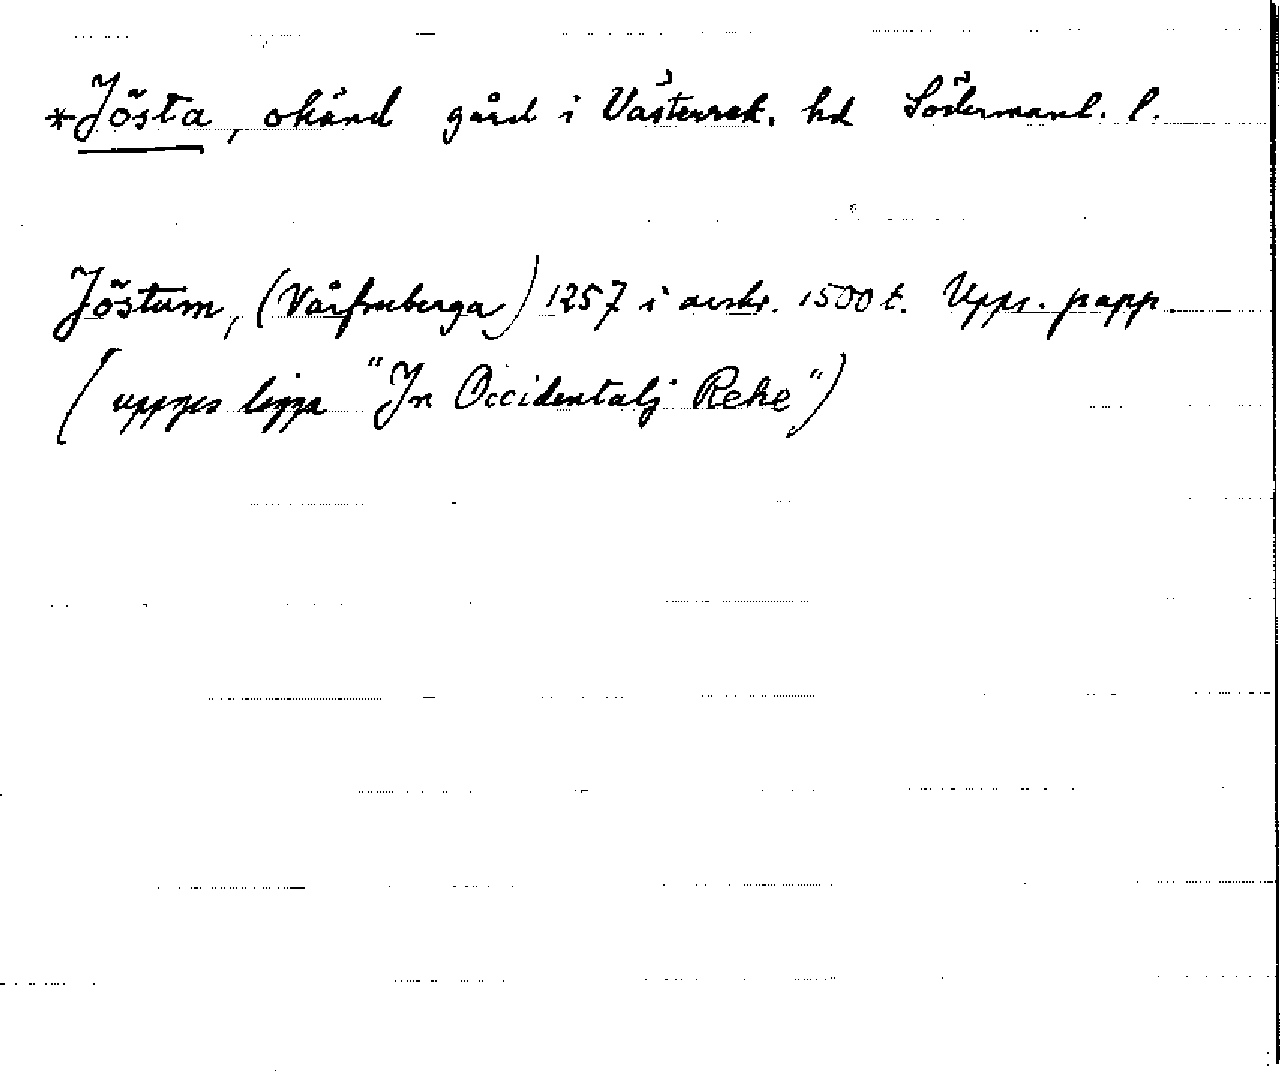 *Jösta, okänd gård i Västerrek. hd Södermanl. l.
Jöstum, (Vårfruberga) 1257 i avskr. 1500 t. Upps. papp.
(uppges ligga "Jn Occidentalj Reke")